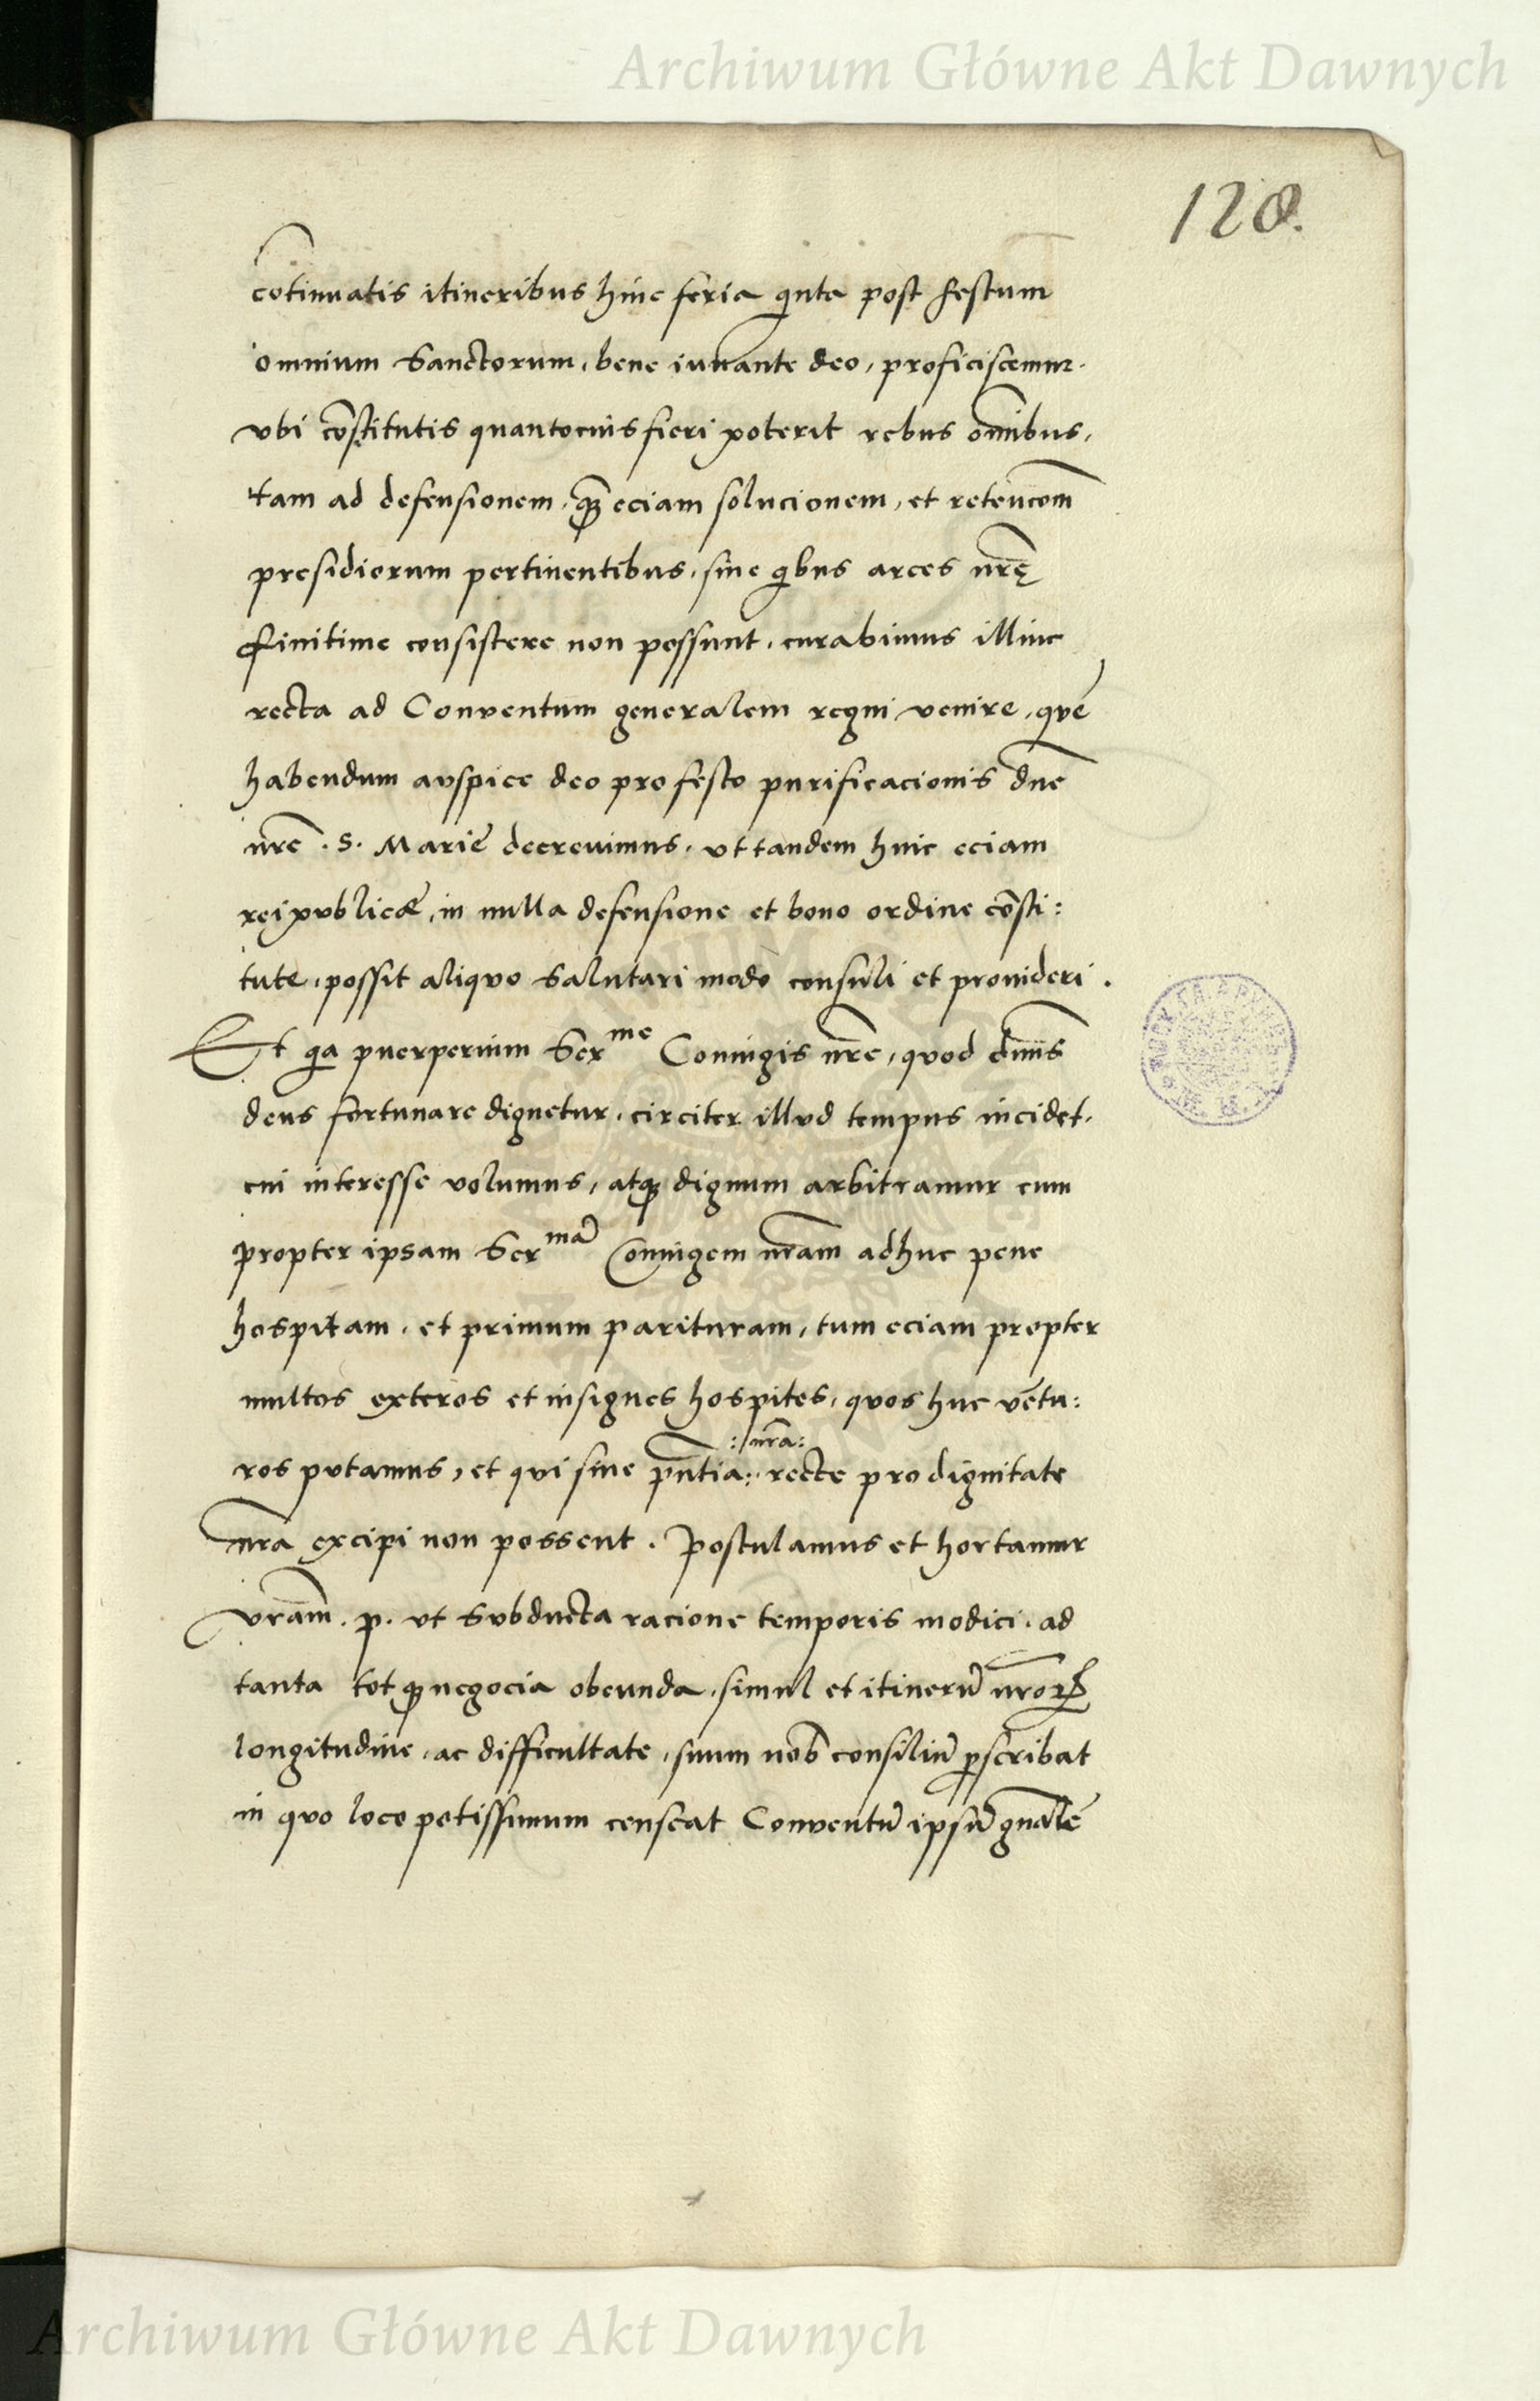 Archiwum Główne Akt Dawnych
128.
cōtinuatis itineribus hinc feria qinta post festum
omnium Sanctorum, bene iuuante deo, proficiscemur.
vbi cōstitutis quantocius fieri poterit rebus omībus,
tam ad defensionem, qȝ eciam solucionem, et retencōm
presidiorum pertinentibus, sine qibus arces nrę
finitime consistere non possunt, curabimus illinc
recta ad Conventum generalem regni venire, qvē
habendum avspice deo pro festo purificacionis dne
nrē . S. Marie decreuimus, vt tandem huic eciam
reipvblicæ, in nulla defensione et bono ordine cōsti:
tute, possit aliqvo Salutari modo consuli et prouideri .
Et qa puerperium Serme Coniugis nrē, qvod dnūs
deus fortunare dignetur, circiter illvd tempus incidet,
cui interesse volumus, atqȝ dignum arbitramur cum
propter ipsam Sermā Coniugem nrām adhuc pene
hospitam, et primum parituram, tum eciam propter
multos exteros et insignes hospites, qvos huc vētu:
:/nrā:
ros pvtamus, et qvi sine pn̄tia:. recte pro dignitate
nrā excipi non possent . Postulamus et hortamur
vrām . p. vt Svbducta racione temporis modici, ad
tanta totqȝ negocia obeunda, simul et itinerū nrōꝝ
longitudine, ac difficultate, suum nob̄ consiliū p̱scribat
in qvo loco potissimum censeat Conventū ipsū gnālē
Archiwum Główne Akt Dawnych